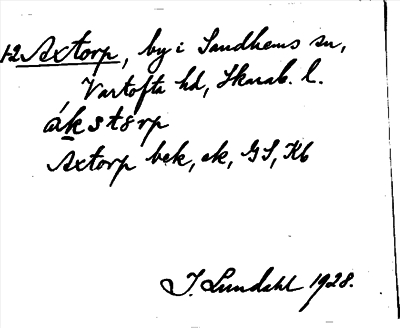 12 Axtorp, by i Sandhems sn,
Vartofta hd, Skarab. l.
ákstørp
Axtorp bek, ek, GS, Kb
I. Lundahl 1928.